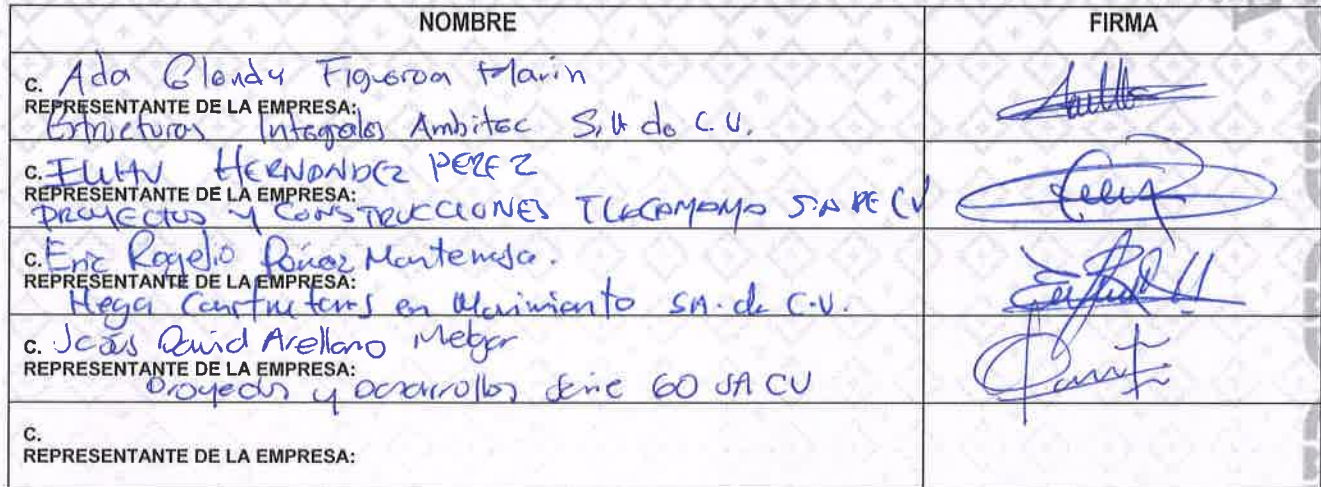 NOMBRE FIRMA
C. Ada Glendy Figueroa Marin
REPRESENTANTE DE LA EMPRESA:
Estructuras Integrales Ambitec S.A de C.V.
C. HERNANDEZ PEREZ
REPRESENTANTE DE LA EMPRESA:
PROYECTOS Y CONSTRUCCIONES TLACAMAMA S.A DE CV
C. Eric Rogelio
REPRESENTANTE DE LA EMPRESA:
Mega Constructores en Movimiento SA. de C.V.
C. Jesús David Arellano Melgar
REPRESENTANTE DE LA EMPRESA:
Proyectos y desarrollos Serie 60 SA CV
C.
REPRESENTANTE DE LA EMPRESA: